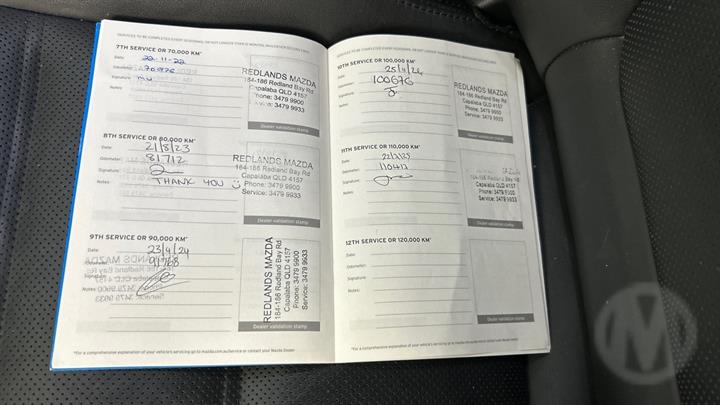 SERVICES TO BE COMPLETED EVERY
7TH SERVICE OR 70,000 KM*
Date: 22-11-22
Odometer:
Signature:
Notes:
REDLANDS MAZDA
184-186 Redland Bay Rd
Capalaba QLD 4157
Phone: 3479 9900
Service: 3479 9933
Dealer validation stamp
8TH SERVICE OR 80,000 KM*
Date: 21/8/23
Odometer: 81712
Signature:
Notes: THANK YOU
REDLANDS MAZDA
184-186 Redland Bay Rd
Capalaba QLD 4157
Phone: 3479 9900
Service: 3479 9933
Dealer validation stamp
9TH SERVICE OR 90,000 KM*
Date: 23/4/24
Odometer: 91768
Signature:
Notes:
REDLANDS MAZDA
184-186 Redland Bay Rd
Capalaba QLD 4157
Phone: 3479 9900
Service: 3479 9933
Dealer validation stamp
*For a comprehensive explanation of your vehicle's servicing go to mazda.com.au/service or contact your Mazda Dealer.
10TH SERVICE OR 100,000 KM*
Date: 25/9/24
Odometer: 100676
Signature:
Notes:
REDLANDS MAZDA
184-186 Redland Bay Rd
Capalaba QLD 4157
Phone: 3479 9900
Service: 3479 9933
Dealer validation stamp
11TH SERVICE OR 110,000 KM*
Date:
Odometer:
Signature:
Notes:
Capalaba QLD 4157
Phone: 3479 9900
Service: 3479 9933
Dealer validation stamp
12TH SERVICE OR 120,000 KM*
Date:
Odometer:
Signature:
Notes:
Dealer validation stamp
*For a comprehensive explanation of your vehicle's servicing go to mazda.com.au/service or contact your Mazda Dealer.
M